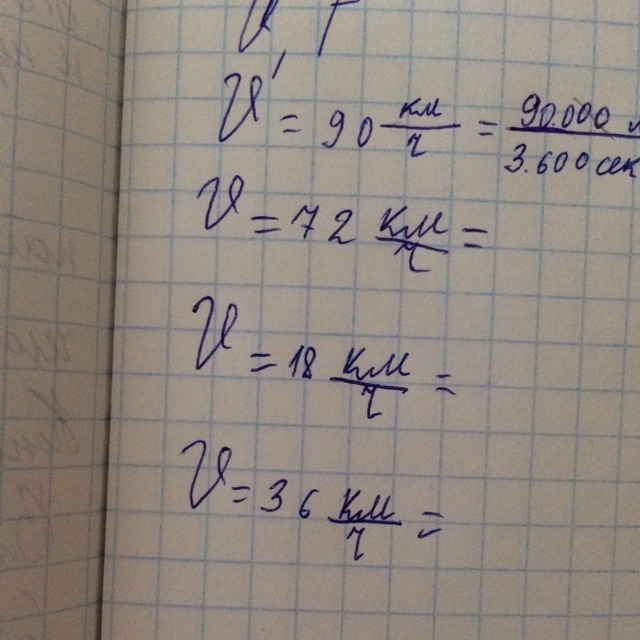 V = 90 км/ч = 90.000 м/3.600 сек
V = 72 км/ч =
V = 18 км/ч =
V = 36 км/ч =